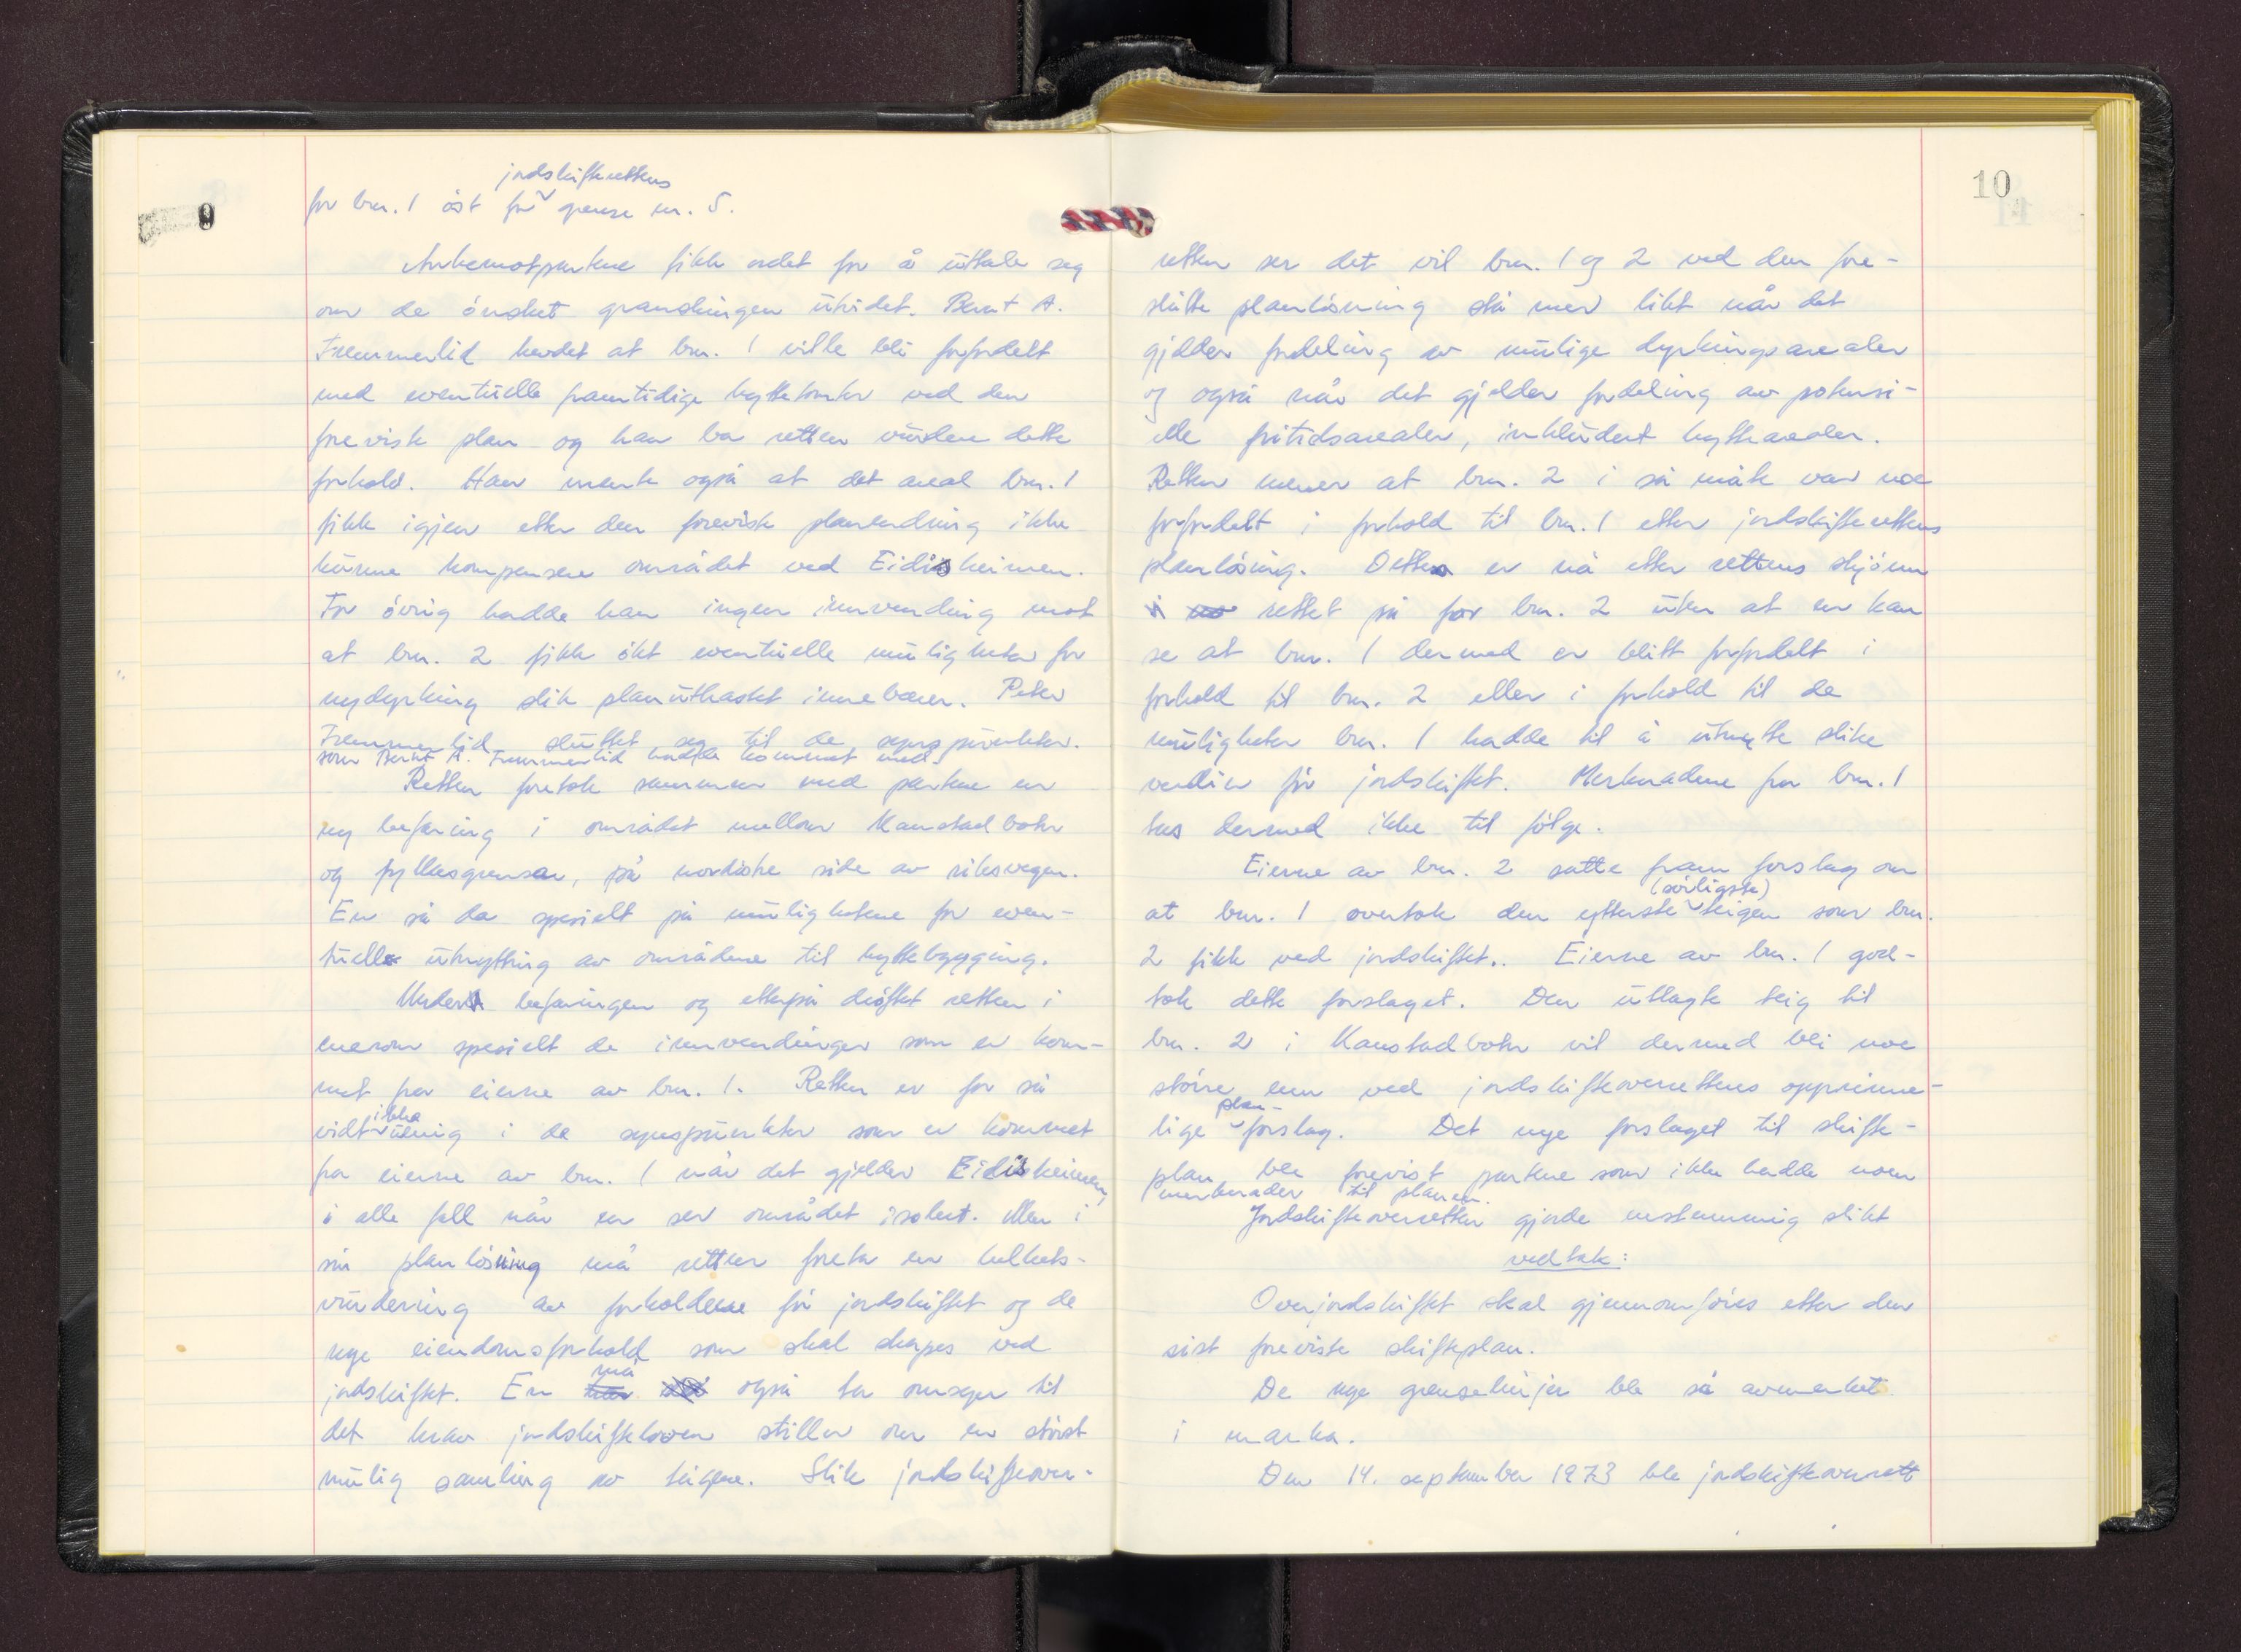 9
jordskifterettens
for brn. 1 øst for grense nr. 5.
Ankemotpartene fikk ordet for å uttale seg
om de ønsket granskingen utvidet. Bernt A.
Fremmerlid hevdet at brn. 1 ville bli forfordelt
med eventuelle framtidige hyttetomter ved den
foreviste plan og han ba retten vurdere dette
forhold. Han mente også at det areal brn. 1
fikk igjen etter den foreviste planendring ikke
kunne kompensere området ved Eidisheimen.
For øvrig hadde han ingen innvending mot
at brn. 2 fikk økt eventuelle muligheter for
nydyrking slik planutkastet innebærer. Peter
Fremmerlid sluttet seg til de synspunkter.
som Bernt A. Fremmerlid hadde kommet med.
Retten foretok sammen med partene en
ny befaring i området mellom Kanstadbotn
og fylkesgrensen, på nordiske side av riksvegen.
En så da spesielt på mulighetene for even-
tuelle utnytting av områdene til hyttebygging.
Under befaringen og etterpå drøftet retten i
enerom spesielt de innvendinger som er kom-
met fra eierne av brn. 1. Retten er for så
ikke
vidt uenig i de synspunkter som er kommet
fra eierne av brn. 1 når det gjelder Eidisheimen,
i alle fall når en ser området isolert. Men i
sin planløsning må retten foreta en helhets-
vurdering av forholdene før jordskiftet og de
nye eiendomsforhold som skal skapes ved
må
jordskiftet. En også ta omsyn til
det krav jordskifteloven stiller om en størst
mulig samling av teigene. Slik jordskifteover-
10
retten ser det vil brn. 1 og 2 ved den fore-
slåtte planløsning stå mer likt når det
gjelder fordeling av mulige dyrkingsarealer
og også når det gjelder fordeling av potensi-
elle fritidsarealer, inkludert hyttearealer.
Retten mener at brn. 2 i så måte var noe
forfordelt i forhold til brn. 1 etter jordskifterettens
planløsing. Dette er nå etter rettens skjønn
rettet på for brn. 2 uten at en kan
se at brn. 1 dermed er blitt forfordelt i
forhold til brn. 2 eller i forhold til de
muligheter brn. 1 hadde til å utnytte slike
verdier før jordskiftet. Merknadene fra brn. 1
tas dermed ikke til følge.
Eierne av brn. 2 satte fram forslag om
(sørligste)
at brn. 1 overtok den ytterste teigen som brn.
2 fikk ved jordskiftet. Eierne av brn. 1 god-
tok dette forslaget. Den utlagte teig til
brn. 2 i Kanstadbotn vil dermed bli noe
større enn ved jordskifteoverrettens opprinne-
plan-
lige forslag. Det nye forslaget til skifte-
plan ble forevist partene som ikke hadde noen
merknader til planen.
Jordskifteoverretten gjorde enstemmig slikt
vedtak:
Overjordskiftet skal gjennomføres etter den
sist foreviste skifteplan.
De nye grenselinjer ble så avmerket
i marka.
Den 14. september 1973 ble jordskifteoverrett